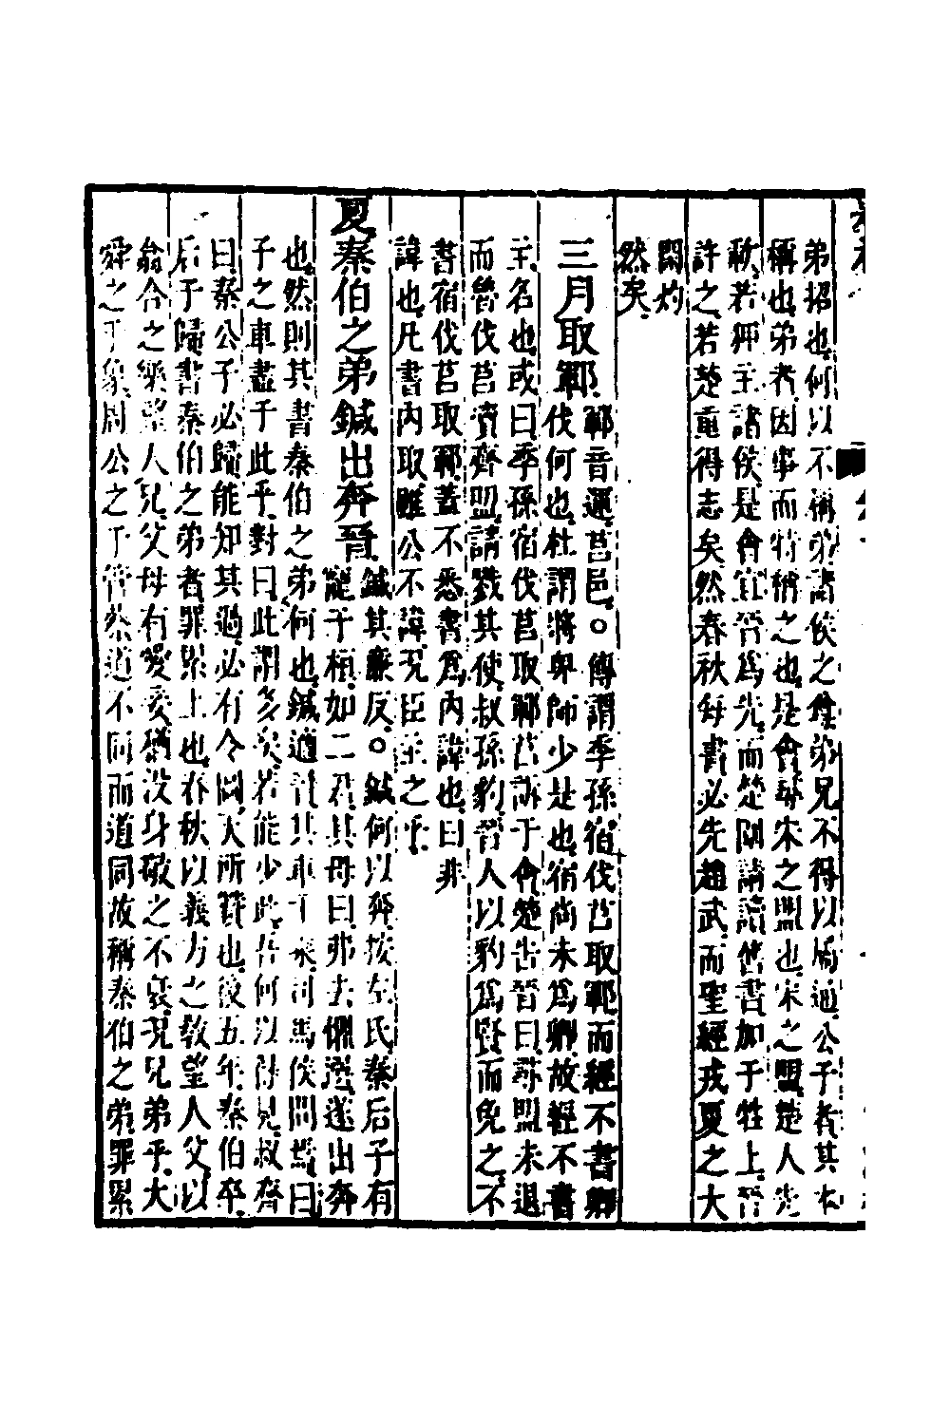 弟招也何以不稱弟諸侯之尊弟兄不得以屬通公子者其本
稱也弟者因事而特稱之也是會尋宋之盟也宋之盟楚人先
歃若師主諸侯是會宜晉爲先而楚圍請讀舊書加于牲上晉
許之若楚重得志矣然春秋每書必先趙武而聖經戎夏之大
閑灼
然矣
三月取鄆
鄆音運莒邑○傳謂季孫宿伐莒取鄆而經不書卿
伐何也杜謂將卑師少是也宿尚未爲卿故經不書
主名也或曰季孫宿伐莒取鄆莒訴于會楚告晉曰尋盟未退
而魯伐莒瀆齊盟請戮其使叔孫豹晉人以豹爲賢而免之不
書宿伐莒取鄆蓋不悉書爲內諱也曰非
諱也凡書內取雖公不諱况臣主之乎
夏秦伯之弟鍼出奔晉
鍼其廉反○鍼何以奔按左氏秦后子有
寵于桓如二君其母曰弗去懼選遂出奔
也然則其書秦伯之弟何也鍼適晉其車千乘司馬侯問焉曰
子之車盡于此乎對曰此謂多矣若能少此吾何以得見叔齊
曰秦公子必歸能知其過必有令圖天所贊也後五年秦伯卒
后子歸書秦伯之弟者罪累上也春秋以義方之教望人父以
翕合之樂望人兄父母有愛妾猶沒身敬之不衰况兄弟乎大
舜之于象周公之于管蔡道不同而道同故稱秦伯之弟罪累